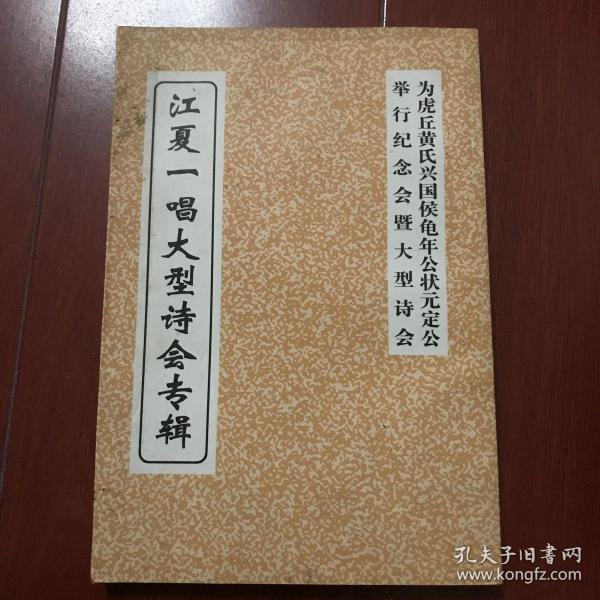 为虎丘黄氏兴国侯龟年公状元定公
举行纪念会暨大型诗会
江夏一唱大型诗会专辑
孔夫子旧書网
www.kongfz.com